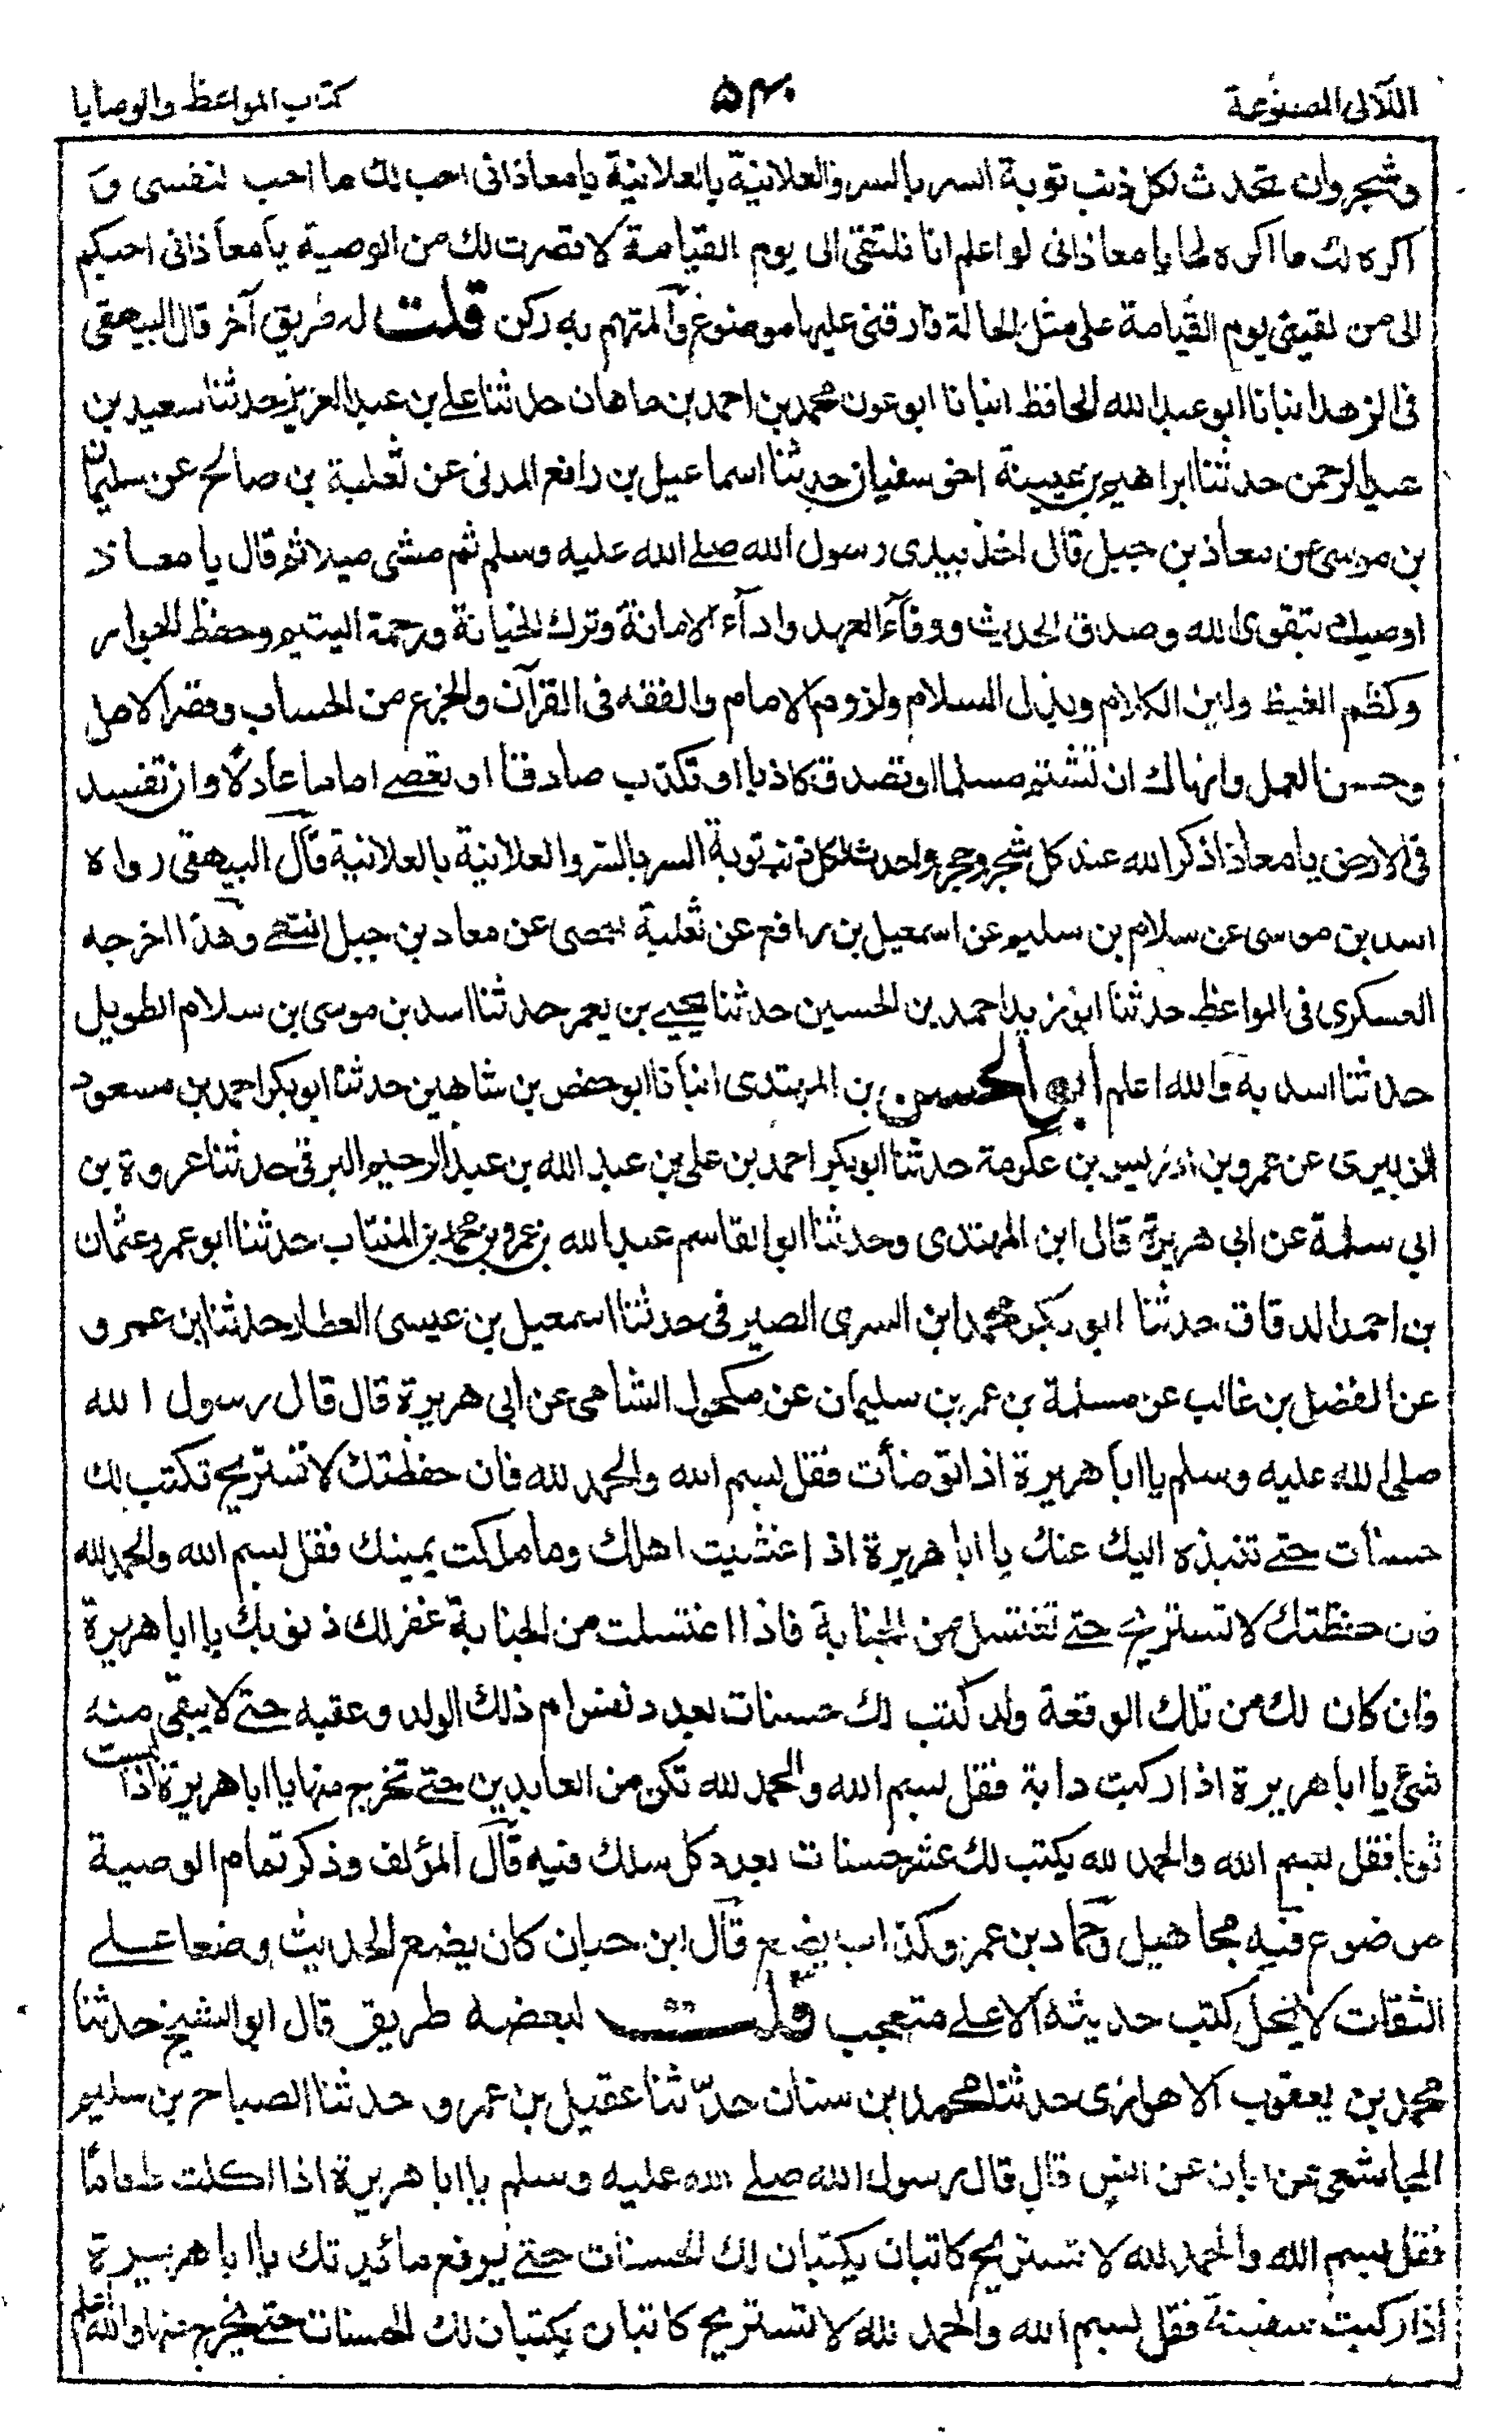 اللآلى المصنوعة
كتاب المواعظ والوصايا
وشجر وان تحدث لكل ذنب توبة السر بالسر والعلانية بالعلانية يا معاذ انى احب لك ما احب لنفسى و
اكره لك ما اكره لها يا معاذ انى لو اعلم انا نلتقى الى يوم القيامة لاقصرت لك من الوصية يا معاذ انى احبكم
الى من لقينى يوم القيامة على مثل الحالة فارقنى عليها موضوع والمتهم به ركن قلت له طريق آخر قال البيهقى
فى الزهد انبانا ابو عبد الله الحافظ انبانا ابو عون محمد بن احمد بن ماهان حدثنا على بن عبد العزيز حدثنا سعيد بن
عبد الرحمن حدثنا ابراهيم بن عيينة اخو سفيان حدثنا اسماعيل بن رافع المدنى عن ثعلبة بن صالح عن سليمان
بن موسى عن معاذ بن جبل قال اخذ بيدى رسول الله صلے الله عليه وسلم ثم مشى ميلا ثم قال يا معاذ
اوصيك بتقوى الله وصدق الحديث ووفآء العهد وادآء الامانة وترك الخيانة ورحمة اليتيم وحفظ الجوار
وكظم الغيظ ولين الكلام وبذل السلام ولزوم الامام والفقه فى القرآن والجزع من الحساب وقصر الامل
وحسن العمل وانهاك ان تشتم مسلما او تصدق كاذبا او تكذب صادقا او تعصے اماما عادلا وان تفسد
فى الارض يا معاذ اذكر الله عند كل شجر وحجر واحدث لكل ذنب توبة السر بالسر والعلانية بالعلانية قال البيهقى رواه
اسد بن موسى عن سلام بن سليم عن اسمعيل بن رافع عن ثعلبة الحمصى عن معاد بن جبل انتهے وهذا اخرجه
العسكرى فى المواعظ حدثنا ابو زيد احمد بن الحسين حدثنا يحيے بن يعمر حدثنا اسد بن موسى بن سلام الطويل
حدثنا اسد به والله اعلم ابو الحسن بن المهتدى انبانا ابو حفص بن شاهين حدثنا ابو بكر احمد بن مسعود
الزبيرى عن عمرو بن ادريس بن عكرمة حدثنا ابو بكر احمد بن على بن عبد الله بن عبد الرحيم البرقى حدثنا عروة بن
ابى سلمة عن ابى هريرة قال ابن المهتدى وحدثنا ابو القاسم عبد الله بن عمرو بن محمد بن المنتاب حدثنا ابو عمرو عثمان
بن احمد الدقاق حدثنا ابو بكر محمد ابن السرى الصيرفى حدثنا اسمعيل بن عيسى العطار حدثنا بن عمرو
عن الفضل بن غالب عن مسلمة بن عمر بن سليمان عن مكحول الشامى عن ابى هريرة قال قال رسول الله
صلى الله عليه وسلم يا ابا هريرة اذا توضأت فقل بسم الله والحمد لله فان حفظتك لا تستريح تكتب لك
حسنات حتے تنبذه اليك عنك يا ابا هريرة اذا غشيت اهلك وما ملكت يمينك فقل بسم الله والحمد لله
فان حفظتك لا تستريح حتے تغتسل من الجنابة فاذا اغتسلت من الجنابة غفر لك ذنوبك يا ابا هريرة
فان كان لك من تلك الوقعة ولد كتب لك حسنات بعدد نفس ام ذلك الولد وعقبه حتے لا يبقى منه
شئ يا ابا هريرة اذا ركبت دابة فقل بسم الله والحمد لله تكن من العابدين حتے تخرج منها يا ابا هريرة اذا لبست
ثوبا فقل بسم الله والحمد لله يكتب لك عشر حسنات بعدد كل سلك فيه قال المؤلف وذكر تمام الوصية
موضوع فيه مجاهيل وحماد بن عمرو كذاب يضع قال ابن حبان كان يضع الحديث وضعا علے
الثقات لا يحل كتب حديثه الا علے متعجب قلت لبعضه طريق قال ابو الشيخ حدثنا
محمد بن يعقوب الاهوازى حدثنا محمد ابن سنان حدّثنا عقيل بن عمرو حدثنا الصباح بن سليم
المجاشعى عن ابان عن انس قال قال رسول الله صلے الله عليه وسلم يا ابا هريرة اذا اكلت طعاما
فقل بسم الله والحمد لله لا تستريح كاتبان يكتبان لك الحسنات حتے يرفع مائدتك يا ابا هريرة
اذا ركبت سفينة فقل بسم الله والحمد لله لا تستريح كاتبان يكتبان لك الحسنات حتے تخرج منها والله اعلم